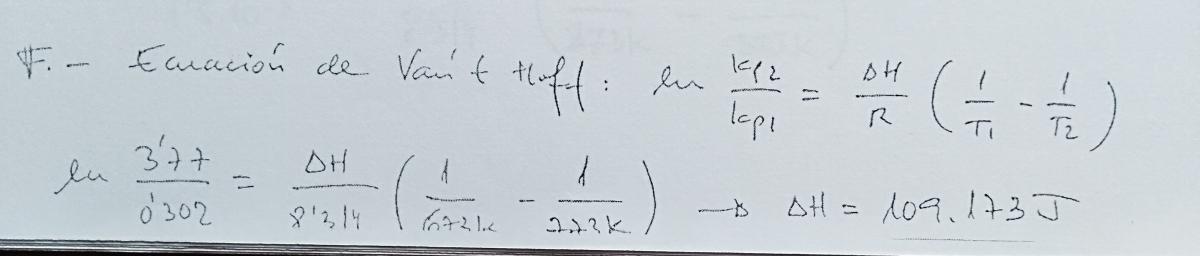 F.- Ecuación de Van't Hoff: ln kp2/kp1 = ΔH/R (1/T1 - 1/T2)
ln 3'77/0'302 = ΔH/8'314 (1/673k - 1/773k) → ΔH = 109.173 J